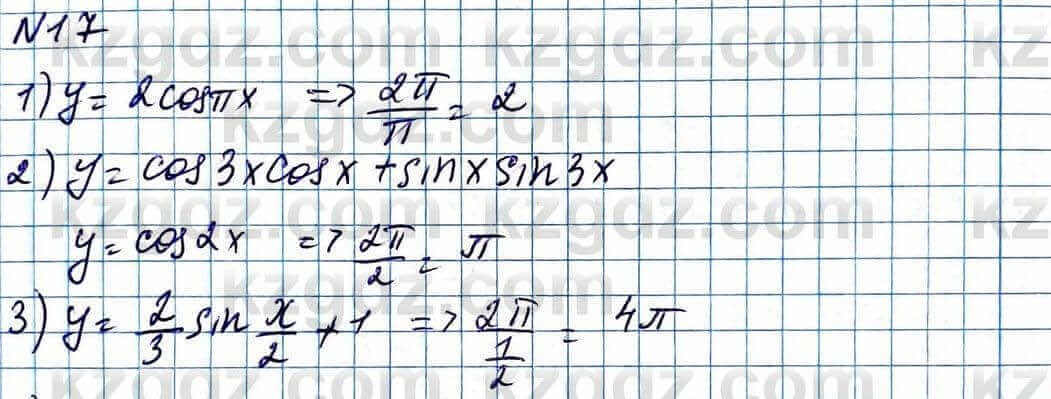 N17
1) y = 2cosπx => 2π/π = 2
2) y = cos3xcosx + sinxsin3x
y = cos2x => 2π/2 = π
3) y = 2/3 sin x/2 + 1 => 2π/(1/2) = 4π
kzgdz.com kzgdz.com kz
kzgdz.com
kzgdz.com kzgdz.com kz
kzgdz.com
kzgdz.com kzgdz.com kz